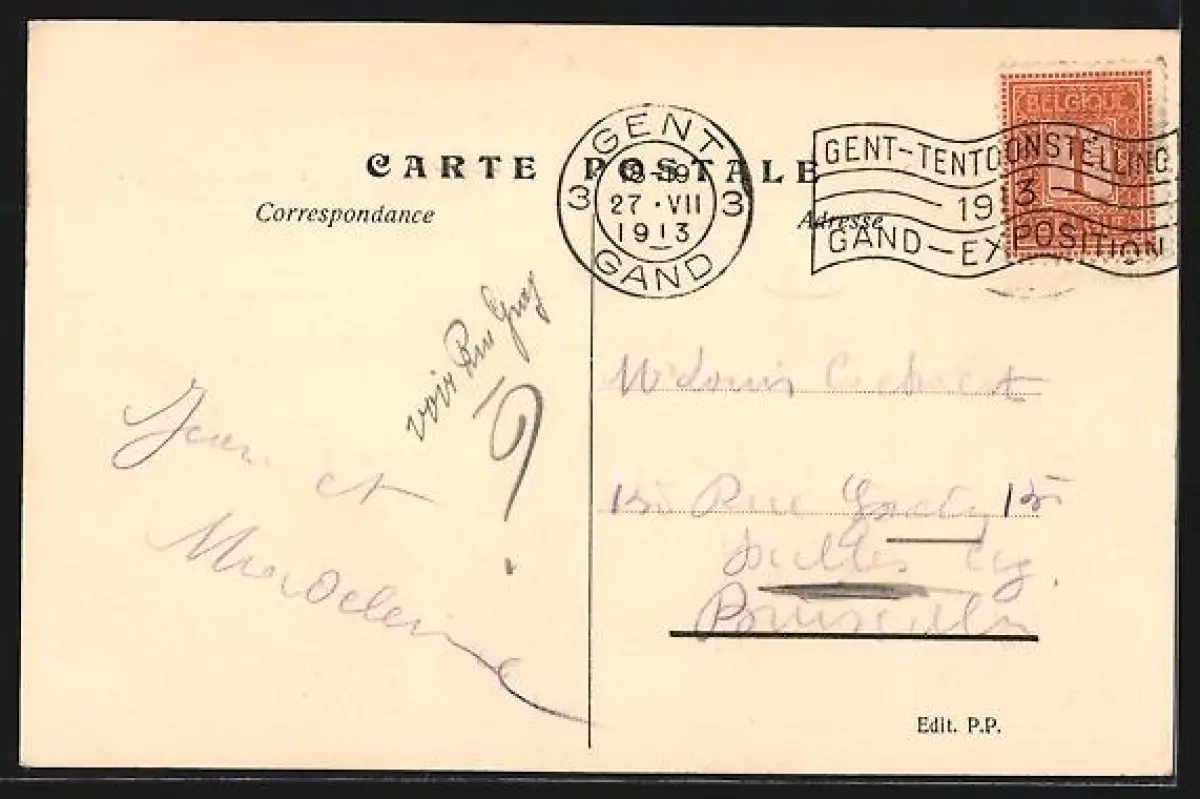 CARTE POSTALE
Correspondance
Adresse
GENT
3 3
27 · VII
1913
GAND
BELGIQUE
1
GENT-TENTOONSTELLING
1913
GAND-EXPOSITION
voir Rue Gray
?
Jean et
Madeleine
Mr Louis
Rue
Bruxelles
Edit. P.P.